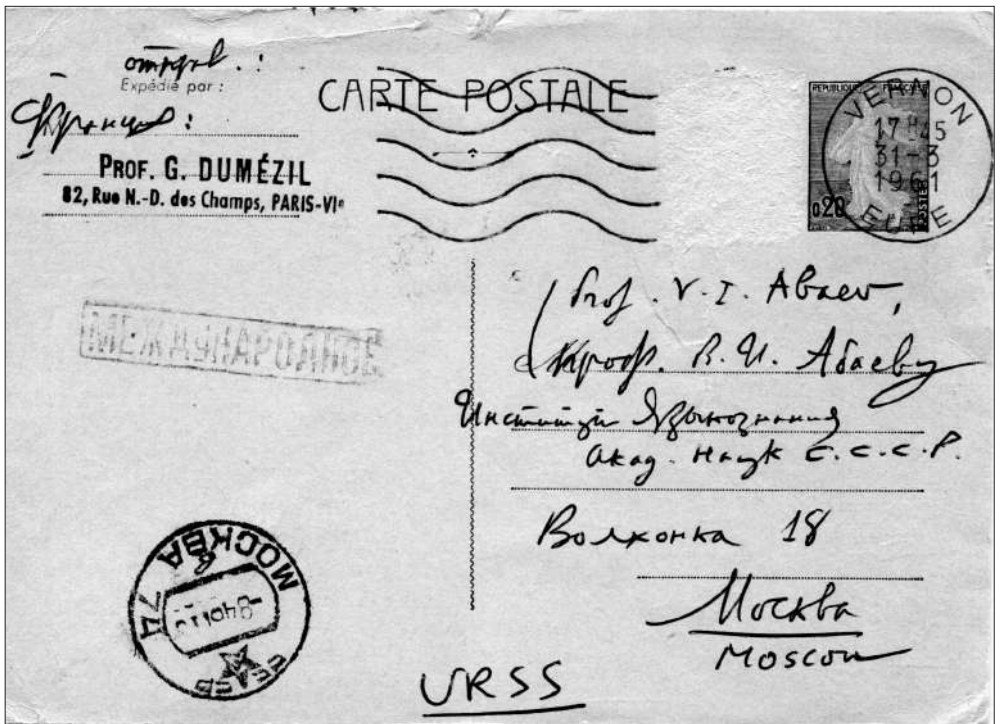 отправ.:
Expédié par :
Франция :
CARTE POSTALE
PROF. G. DUMÉZIL
82, Rue N.-D. des Champs, PARIS-VIe
REPUBLIQUE FRANÇAISE
0,20
POSTES
VERNON
17 H 45
31-3
1961
EURE
МЕЖДУНАРОДНОЕ
Prof. V. I. Abaev,
Проф. В. И. Абаеву
Институт Языкознания
Акад. Наук С.С.С.Р.
Волхонка 18
Москва
Moscou
URSS
МОСКВА
74
СССР